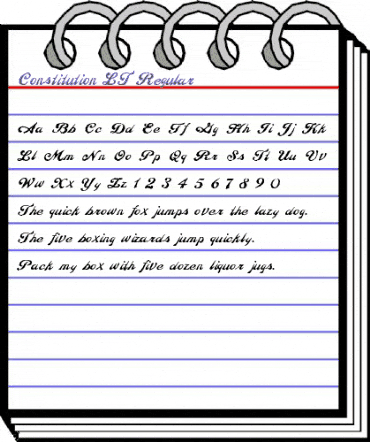 Constitution LT Regular
Aa Bb Cc Dd Ee Ff Gg Hh Ii Jj Kk
Ll Mm Nn Oo Pp Qq Rr Ss Tt Uu Vv
Ww Xx Yy Zz 1 2 3 4 5 6 7 8 9 0
The quick brown fox jumps over the lazy dog.
The five boxing wizards jump quickly.
Pack my box with five dozen liquor jugs.